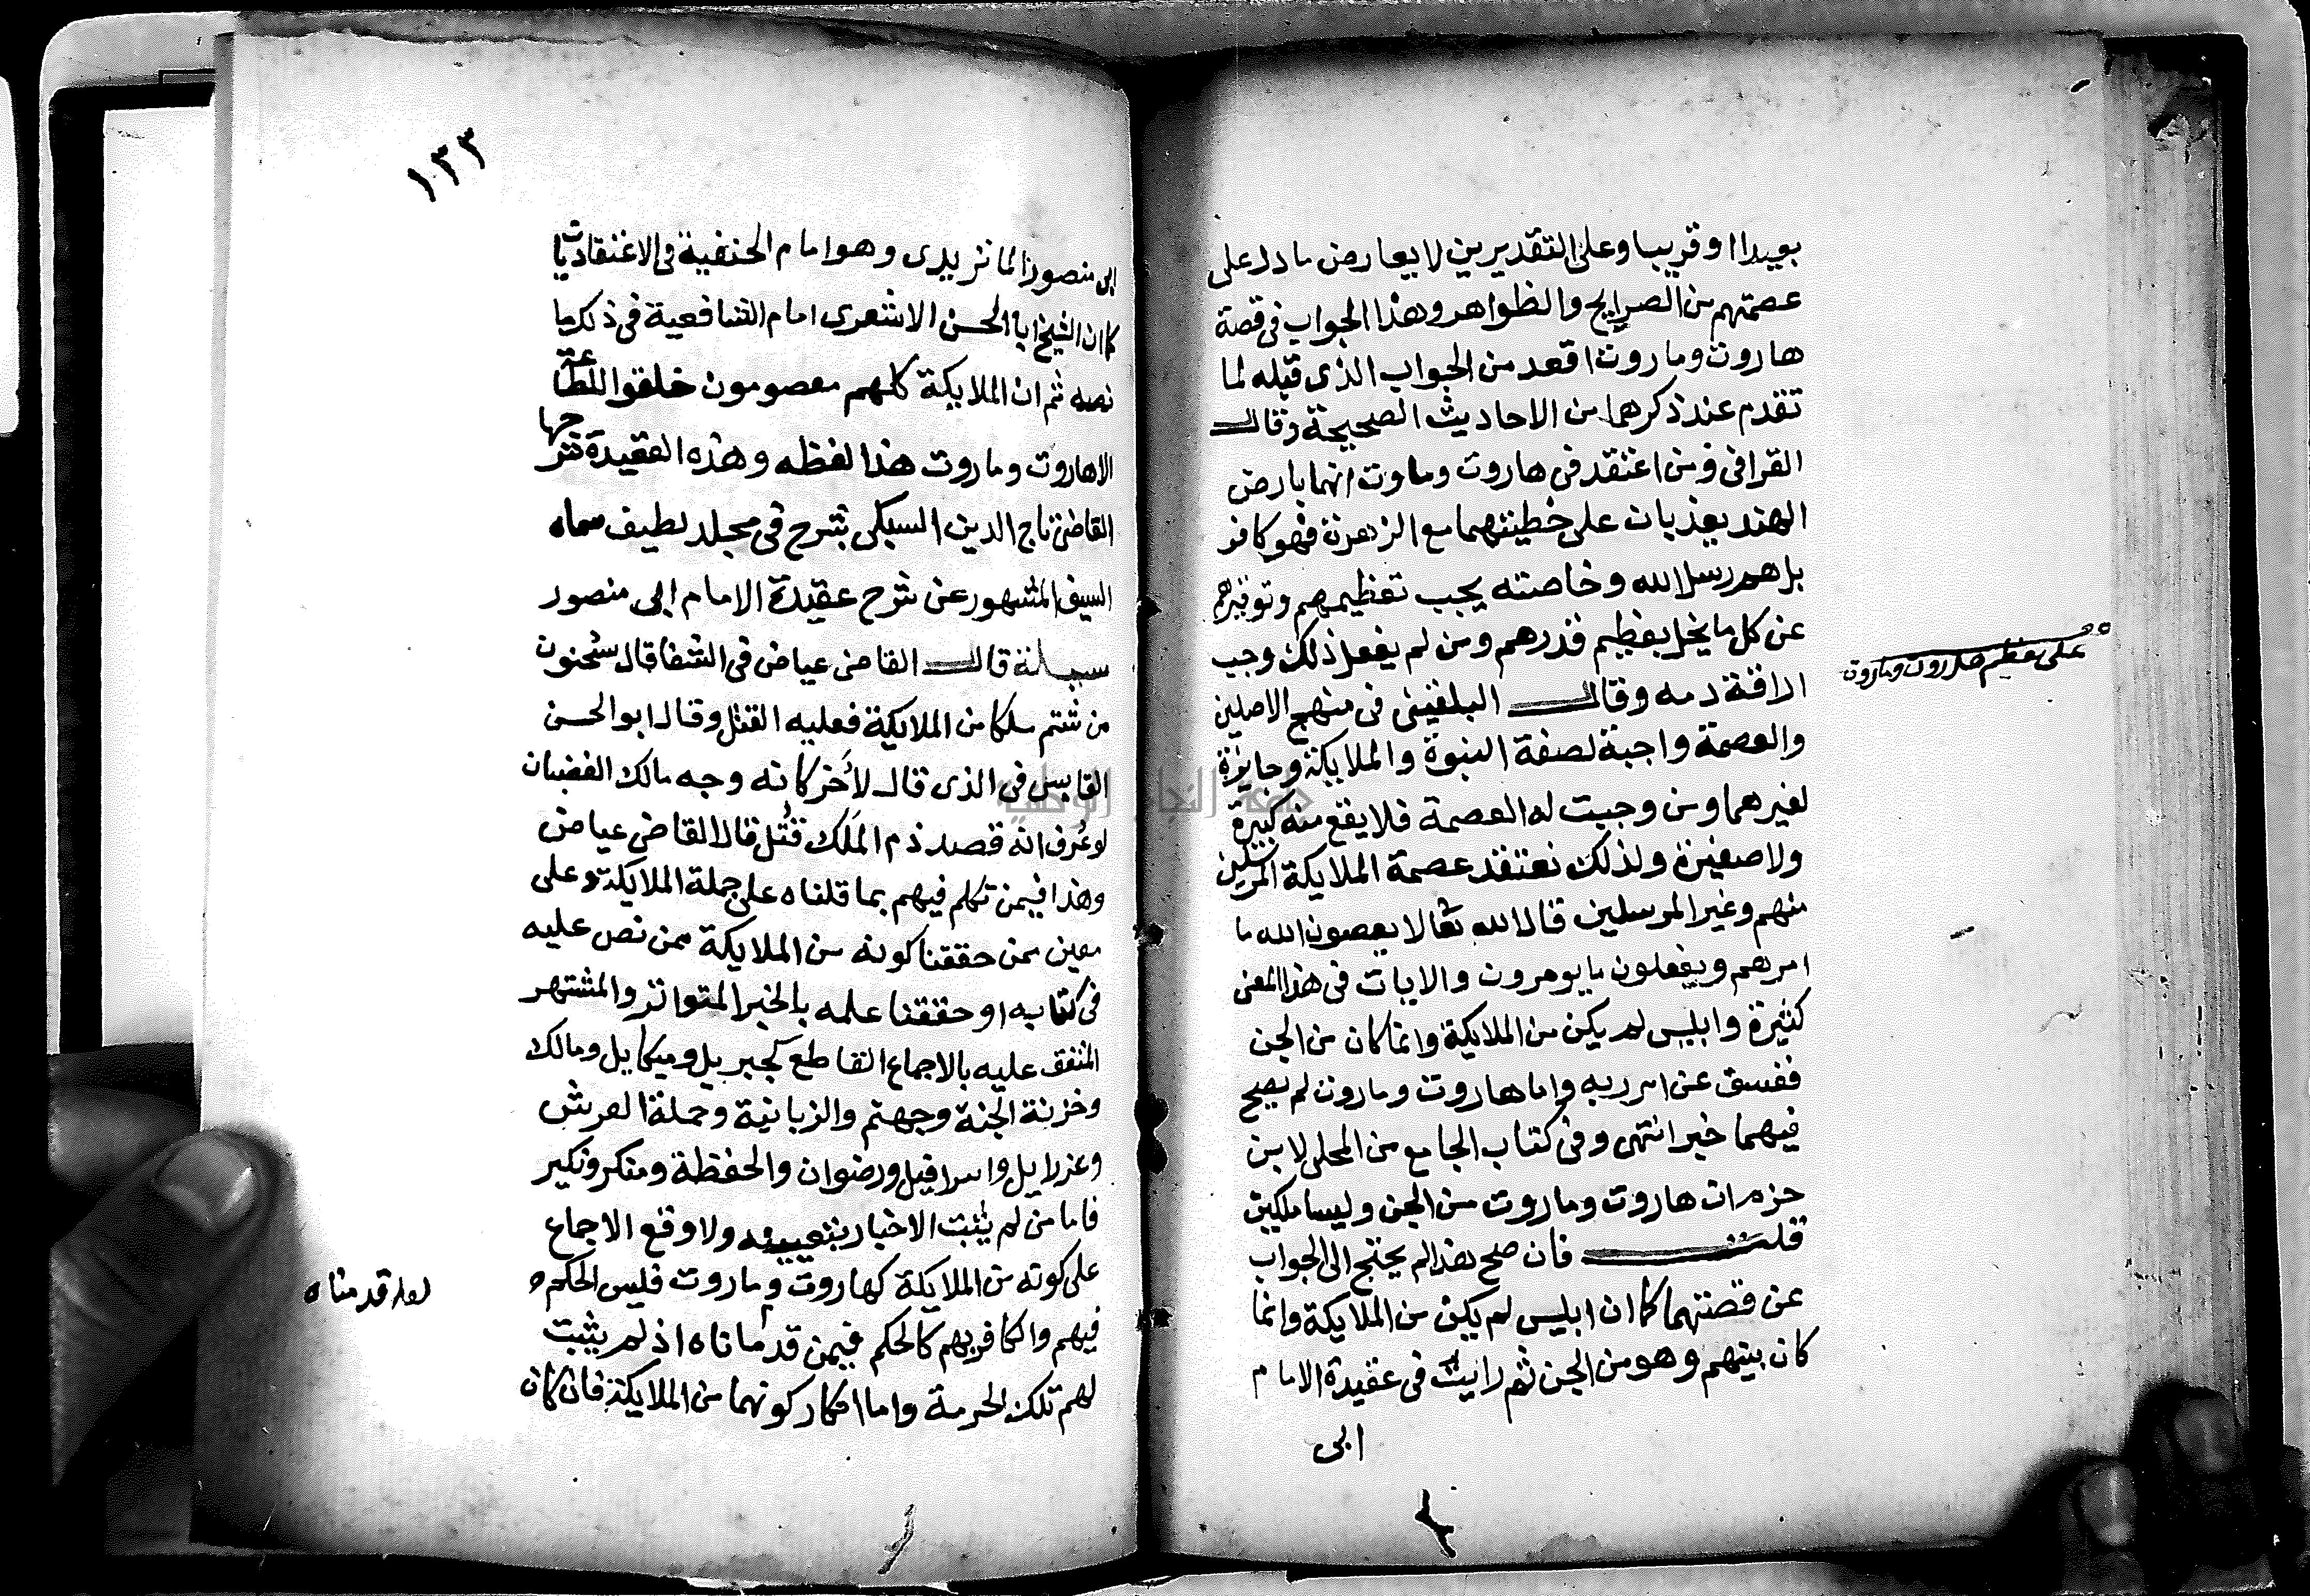 بعيدا او قريبا وعلى التقديرين لا يعارض ما دل على
عصمتهم من الصرايح والظواهر وهذا الجواب في قصة
هاروت وماروت اقعد من الجواب الذى قبله لما
تقدم عند ذكرهما من الاحاديث الصحيحة وقال
القرافى ومن اعتقد فى هاروت وماوت انهما بارض
الهند يعذبان على خطيئتهما مع الزهرة فهو كافر
بل هم رسل الله وخاصته يجب تعظيمهم وتوقيرهم
عن كل ما يخل بعظيم قدرهم ومن لم يفعل ذلك وجب
اراقة دمه وقال البلقينى فى منهج الاصلين
والعصمة واجبة لصفة النبوة والملايكة وجايزة
لغيرهما ومن وجبت له العصمة فلا يقع منه كبيرة
ولا صغيرة ولذلك نعتقد عصمة الملايكة المرسلين
منهم وغير المرسلين قال الله تعالا لا يعصون الله ما
امرهم ويفعلون ما يومرون والايات فى هذا المعنى
كثيرة وابليس لم يكن من الملايكة وانما كان من الجن
ففسق عن امر ربه واما هاروت وماروت لم يصح
فيهما خبر انتهى وفى كتاب الجامع من المحلى لابن
حزم ان هاروت وماروت من الجن وليسا ملكين
قلت فان صح هذا لم يحتج الى الجواب
عن قصتهما كما ان ابليس لم يكن من الملايكة وانما
كان بينهم وهو من الجن ثم رايت فى عقيدة الامام
ابى
على تعظيم هاروت وماروت
١٣٣
ابى منصور الماتريدى وهو امام الحنفية فى الاعتقاديات
كما ان الشيخ ابا الحسن الاشعرى امام الشافعية فى ذلك ما
نصه ثم ان الملايكة كلهم معصومون خلقوا للطاعة
الا هاروت وماروت هذا لفظه وهذه العقيدة شرحها
القاضى تاج الدين السبكى بشرح فى مجلد لطيف سماه
السيف المشهور عن شرح عقيدة الامام ابى منصور
مسئلة قال القاضى عياض فى الشفا قال سحنون
من شتم ملكا من الملايكة فعليه القتل وقال ابو الحسن
القابسى فى الذى قال لأخر كانه وجه مالك الغضبان
لو عُرف انه قصد ذم المَلَك قُتل قال القاضى عياض
وهذا فيمن تكلم فيهم بما قلناه على جملة الملايكة وعلى
معين ممن حققنا كونه من الملايكة ممن نص عليه
فى كتابه او حققنا علمه بالخبر المتواتر والمشتهر
المتفق عليه بالاجماع القاطع كجبريل وميكايل ومالك
وخزنة الجنة وجهنم والزبانية وحملة العرش
وعزرايل واسرافيل ورضوان والحفظة ومنكر ونكير
فاما من لم يثبت الاخبار بتعيينه ولا وقع الاجماع
على كونه من الملايكة كهاروت وماروت فليس الحكم
فيهم والكافر بهم كالحكم فيمن قدماناه اذ لم يثبت
لهم تلك الحرمة واما انكار كونهما من الملايكة فان كان
لعله قدمناه